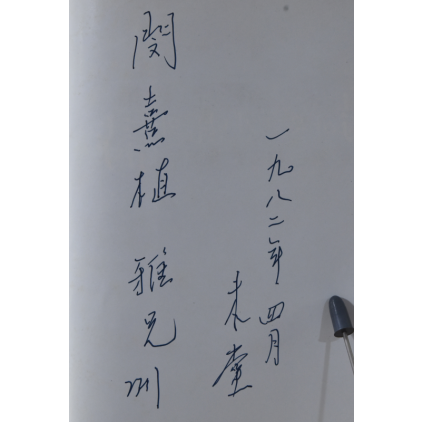 閔熹植 雅兄께
一九八二年 四月
未堂